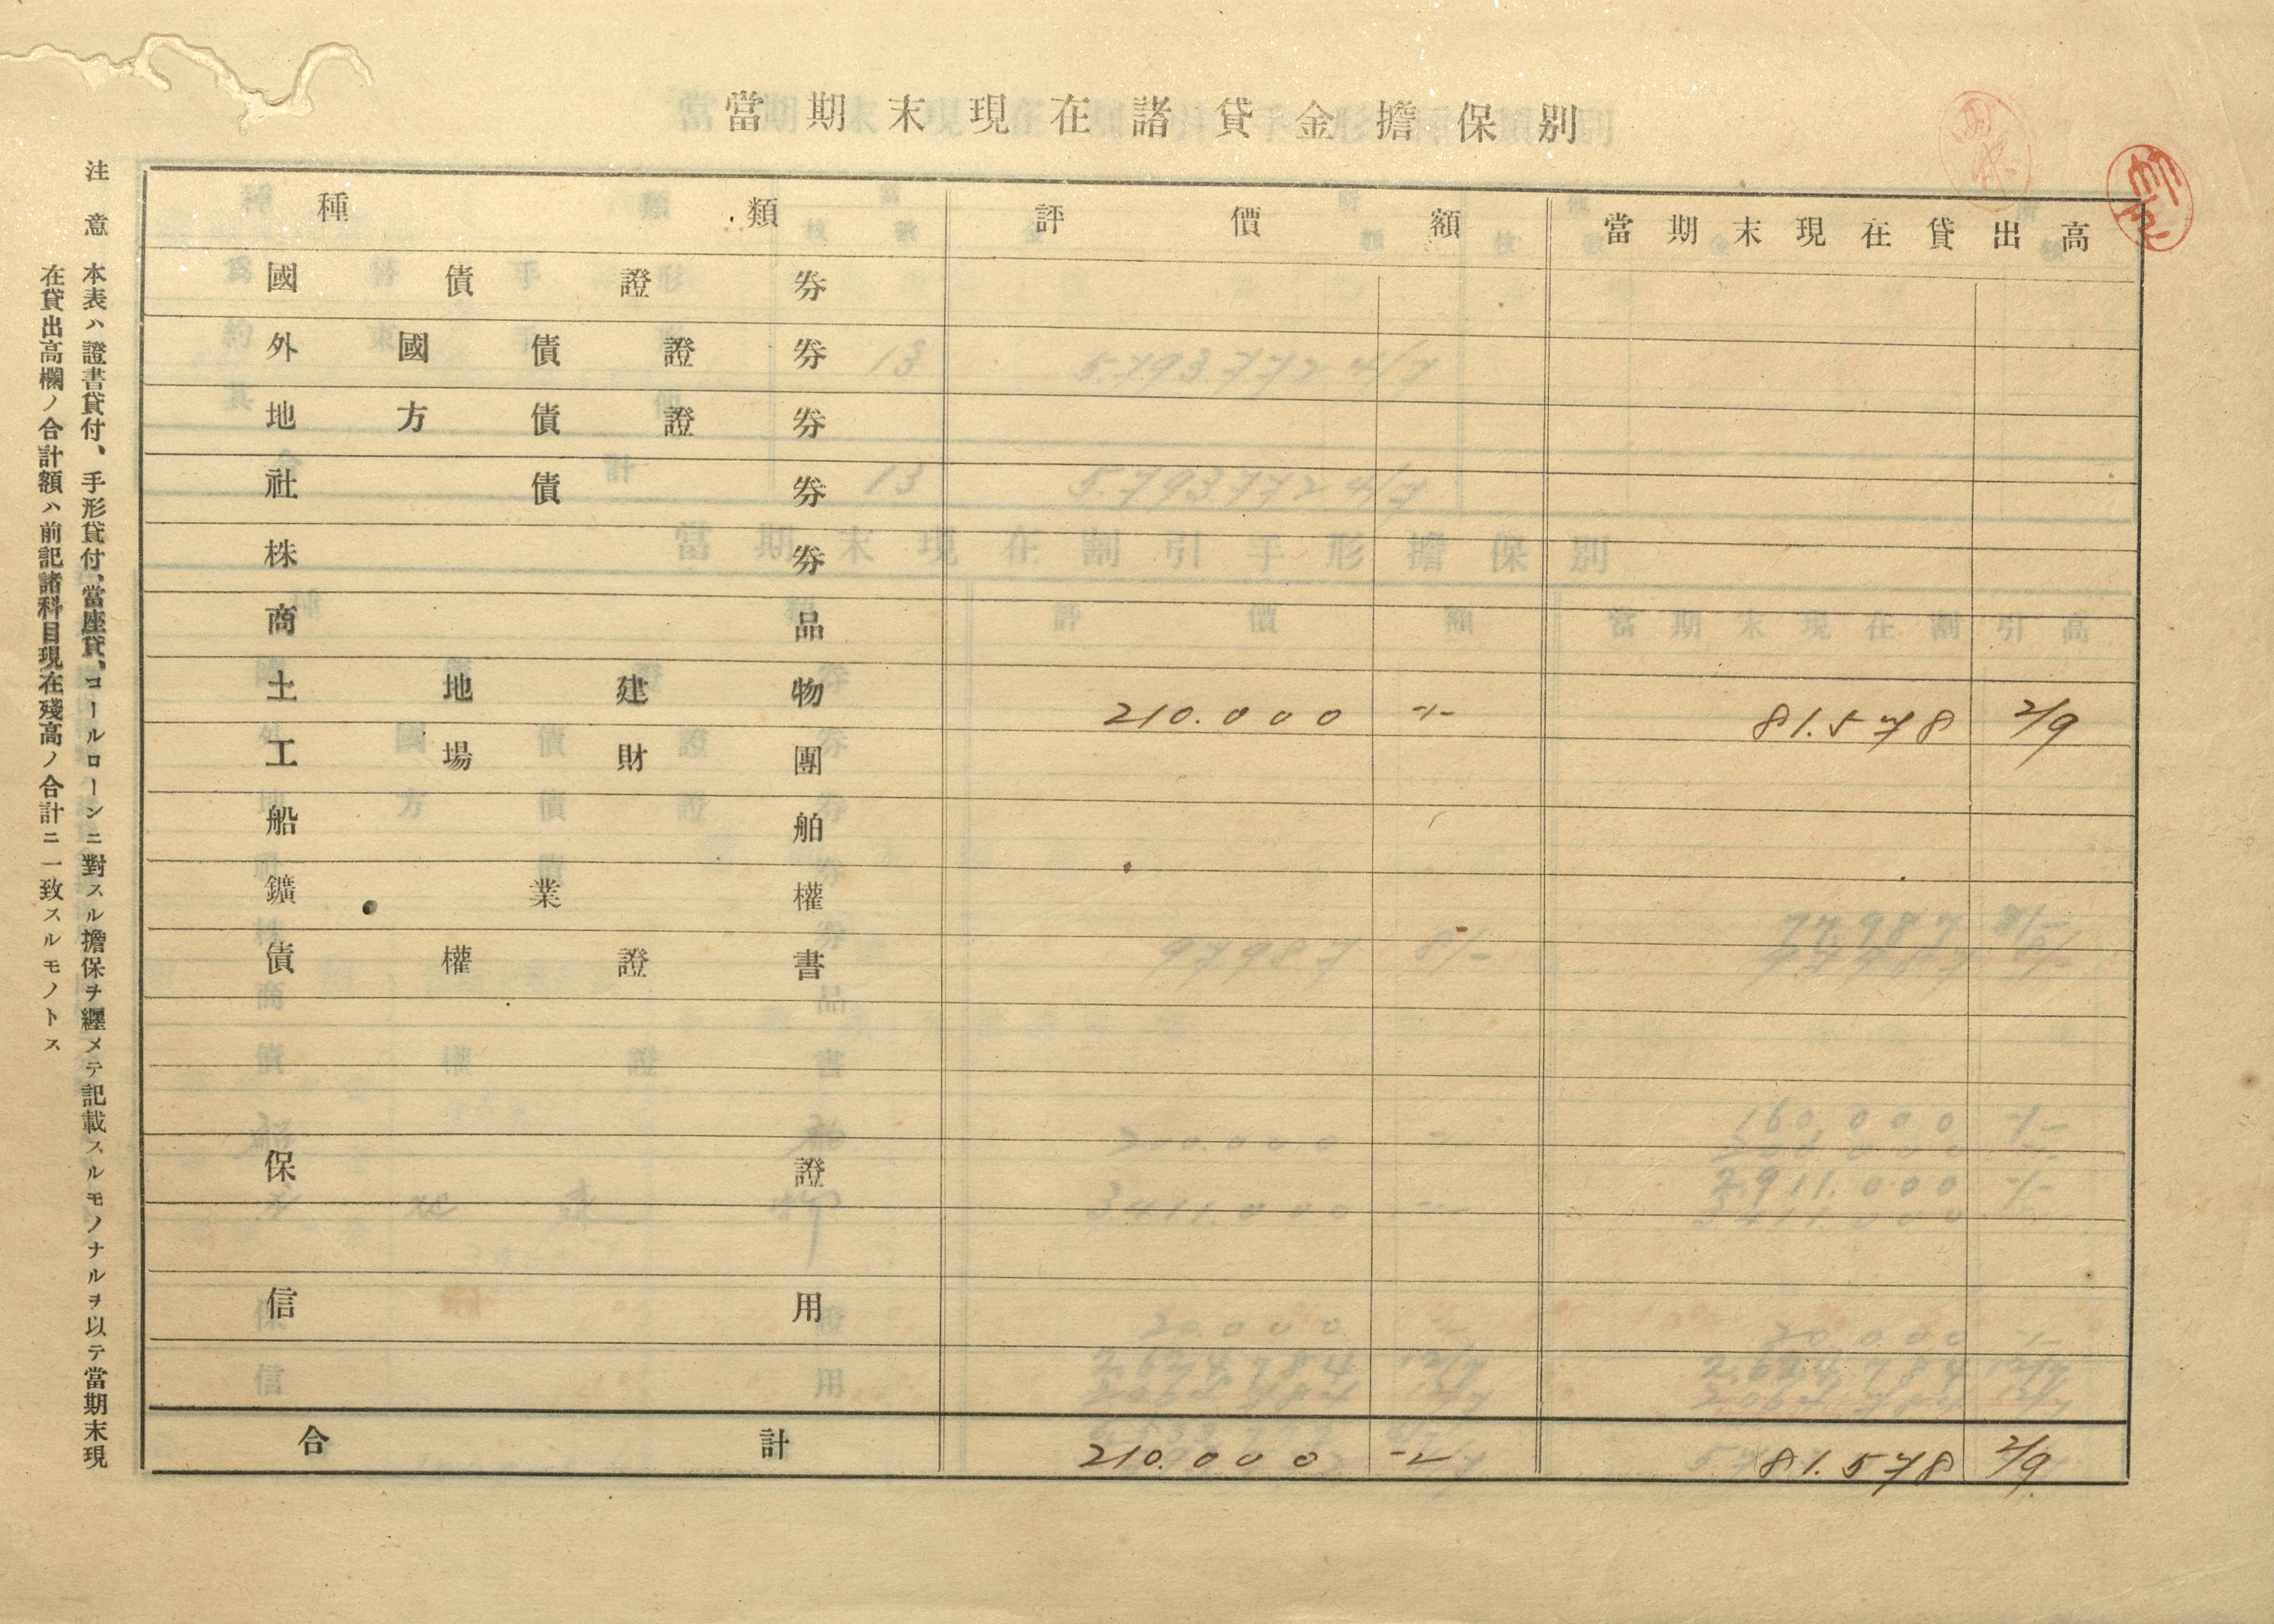 當期末現在諸貸金擔保別
種類 評價額 當期末現在貸出高
國債證券
外國債證券
地方債證券
社債券
株券
商品
土地建物 210.000 -/- 81.578 2/9
工場財團
船舶
鑛業權
債權證書
保證
信用
合計 210.000 -/- 81.578 2/9
注意 本表ハ證書貸付、手形貸付、當座貸、コールローンニ對スル擔保ヲ纒メテ記載スルモノナルヲ以テ當期末現
在貸出高欄ノ合計額ハ前記諸科目現在殘高ノ合計ニ一致スルモノトス